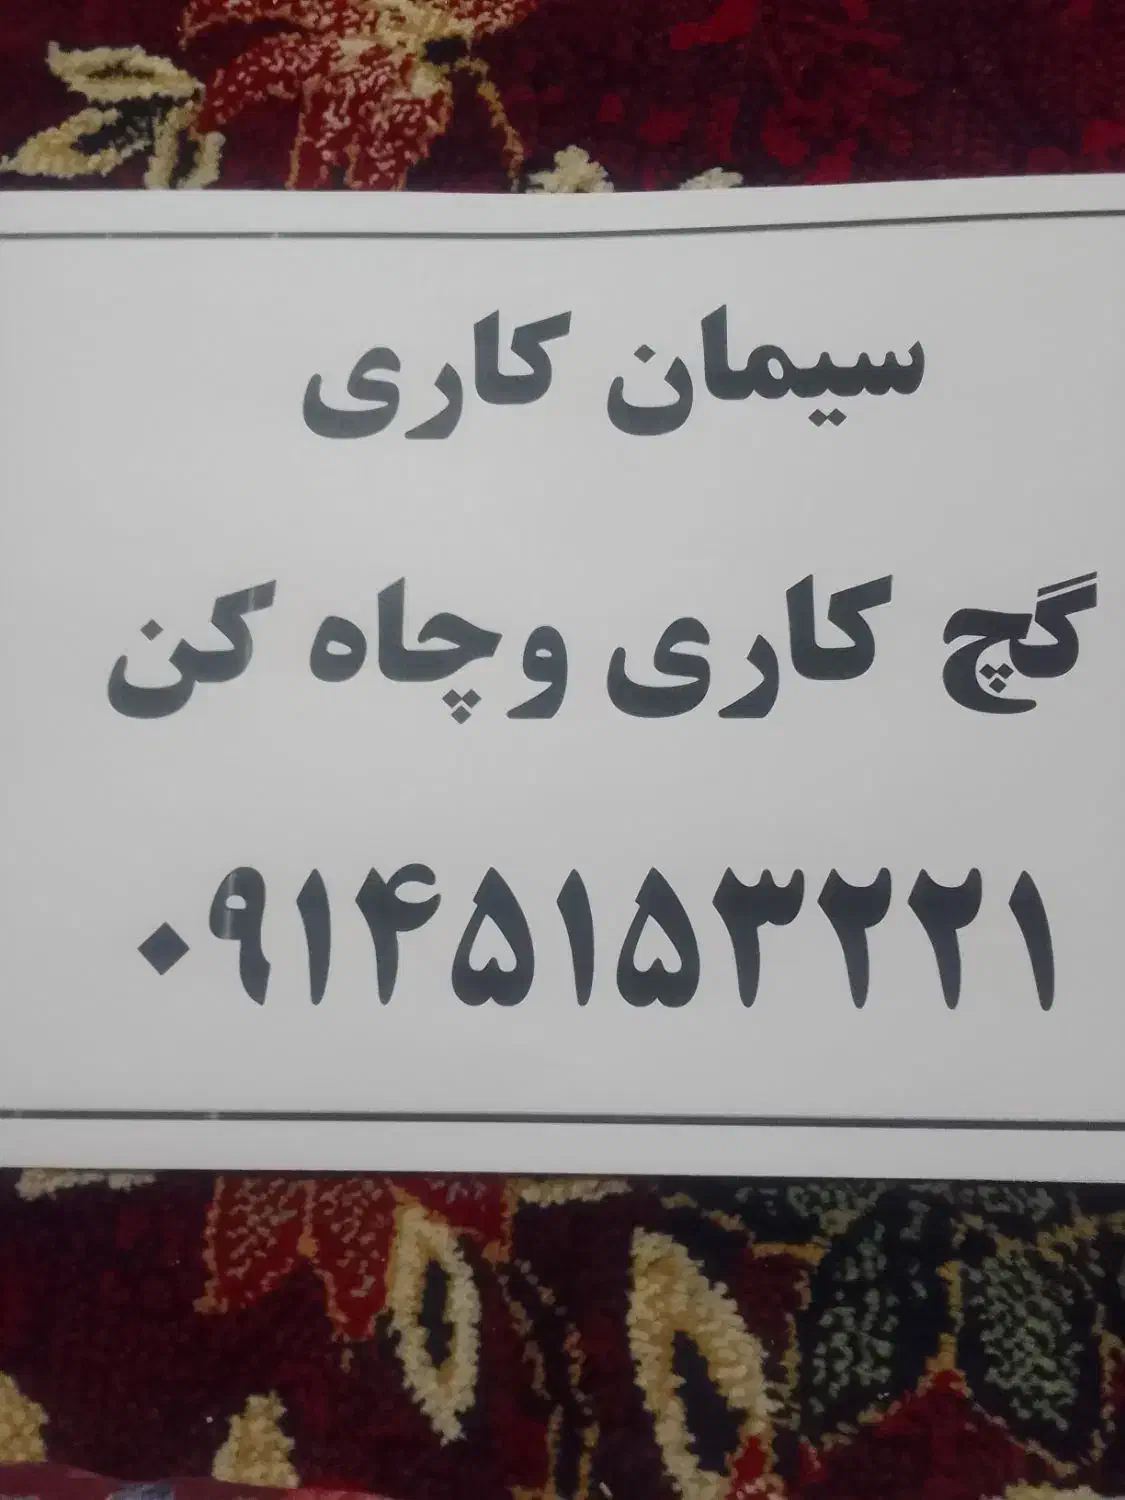 سیمان کاری
گچ کاری وچاه کن
۰۹۱۴۵۱۵۳۲۲۱